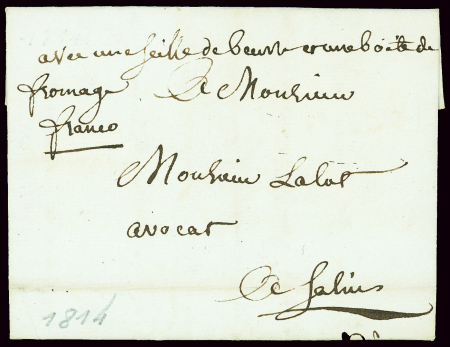 avec une seille de beurre et une boëte de
fromage A Monsieur
franco
Monsieur Lalot
avocat
A Salins
1814